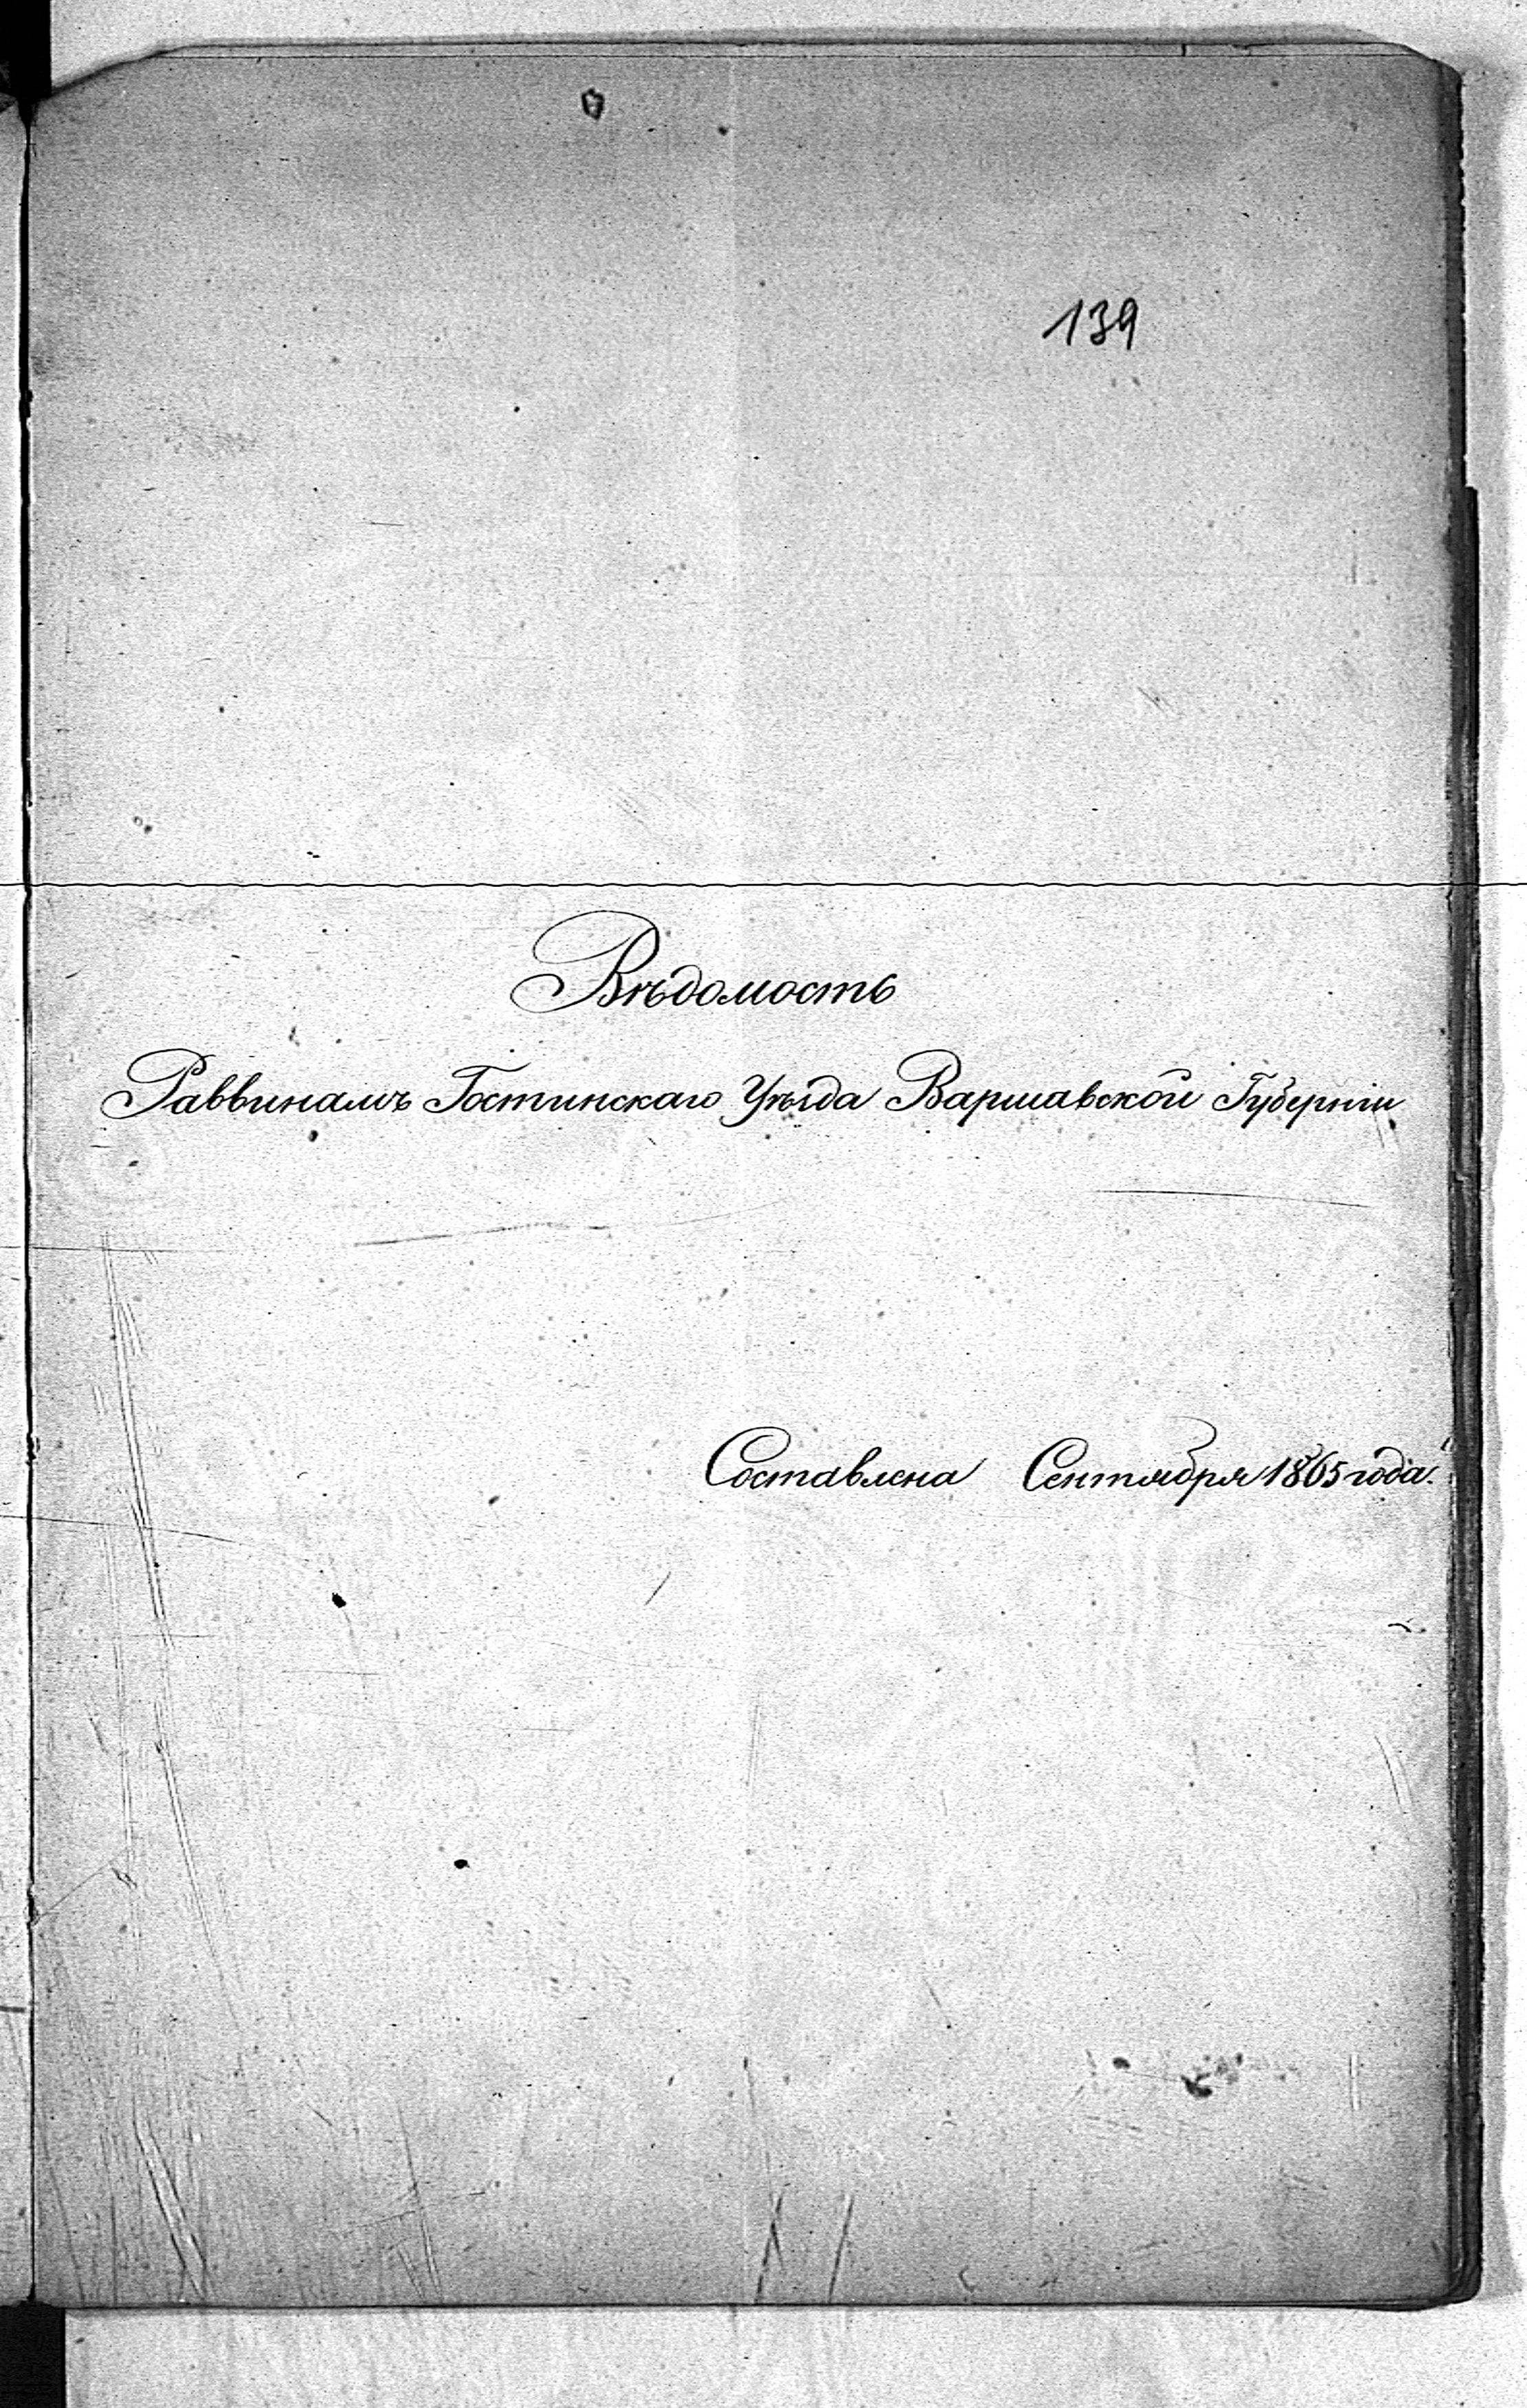 139
Вѣдомость
Раввинамъ Гостинскаго Уѣзда Варшавской Губерніи
Составлена Сентября 1865 года.